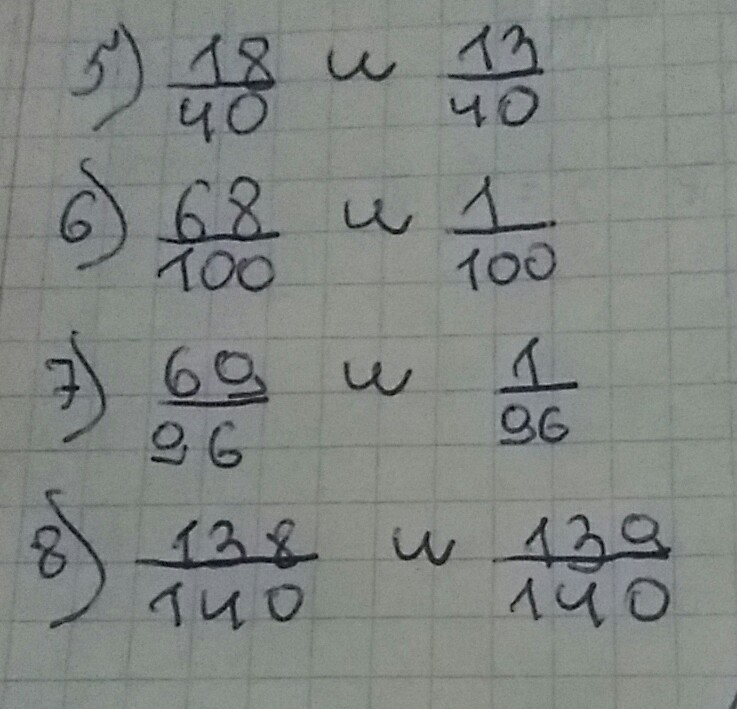 5) 18/40 и 13/40
6) 68/100 и 1/100
7) 69/96 и 1/96
8) 138/140 и 139/140